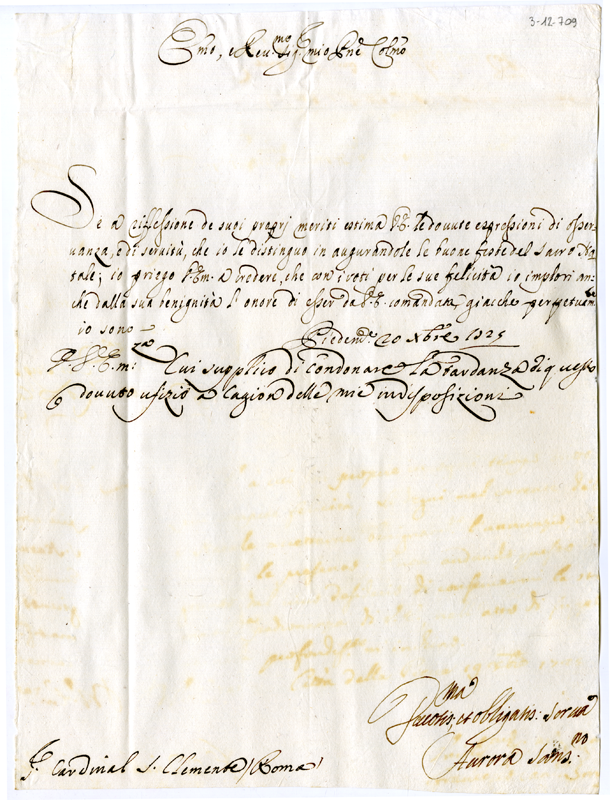 3-12-709
Emo, e Reu.mo Sig. mio Pnē Colmo
Se a riflessione de suoi proprj meriti estima V.E. le dovute espressioni di osser-
uanza, e di seruitù, che io le distinguo in augurandole le buone feste del Sacro Na-
tale; io priego V.Em.a a credere, che con i voti per le sue felicità io implori an-
che dalla sua benignità l'onore di esser da V.E. comandata, giacche perpetuam.te
io sono
Piedem.te 20 Xbre 1725
D. V. Em:za Cui supplico di condonare la tardanza di questo
dovuto ufizio a cagion delle mie indisposizioni
Diuotis., et obligatis.ma: serua
Aurora Sans.no
Sr. Cardinal S. Clemente (Roma)